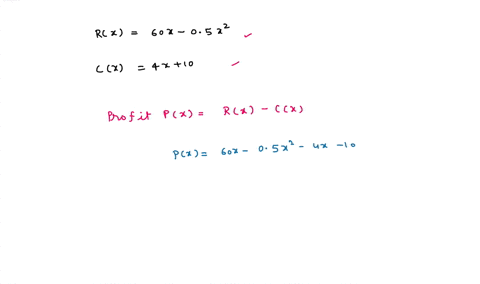 R(x) = 60x - 0.5x²
C(x) = 4x+10
Profit P(x) = R(x) - C(x)
P(x) = 60x - 0.5x² - 4x - 10